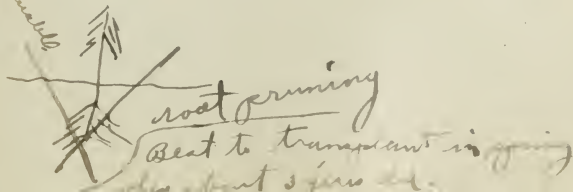 root pruning
Best to transplant in spring
about 3 yrs old.